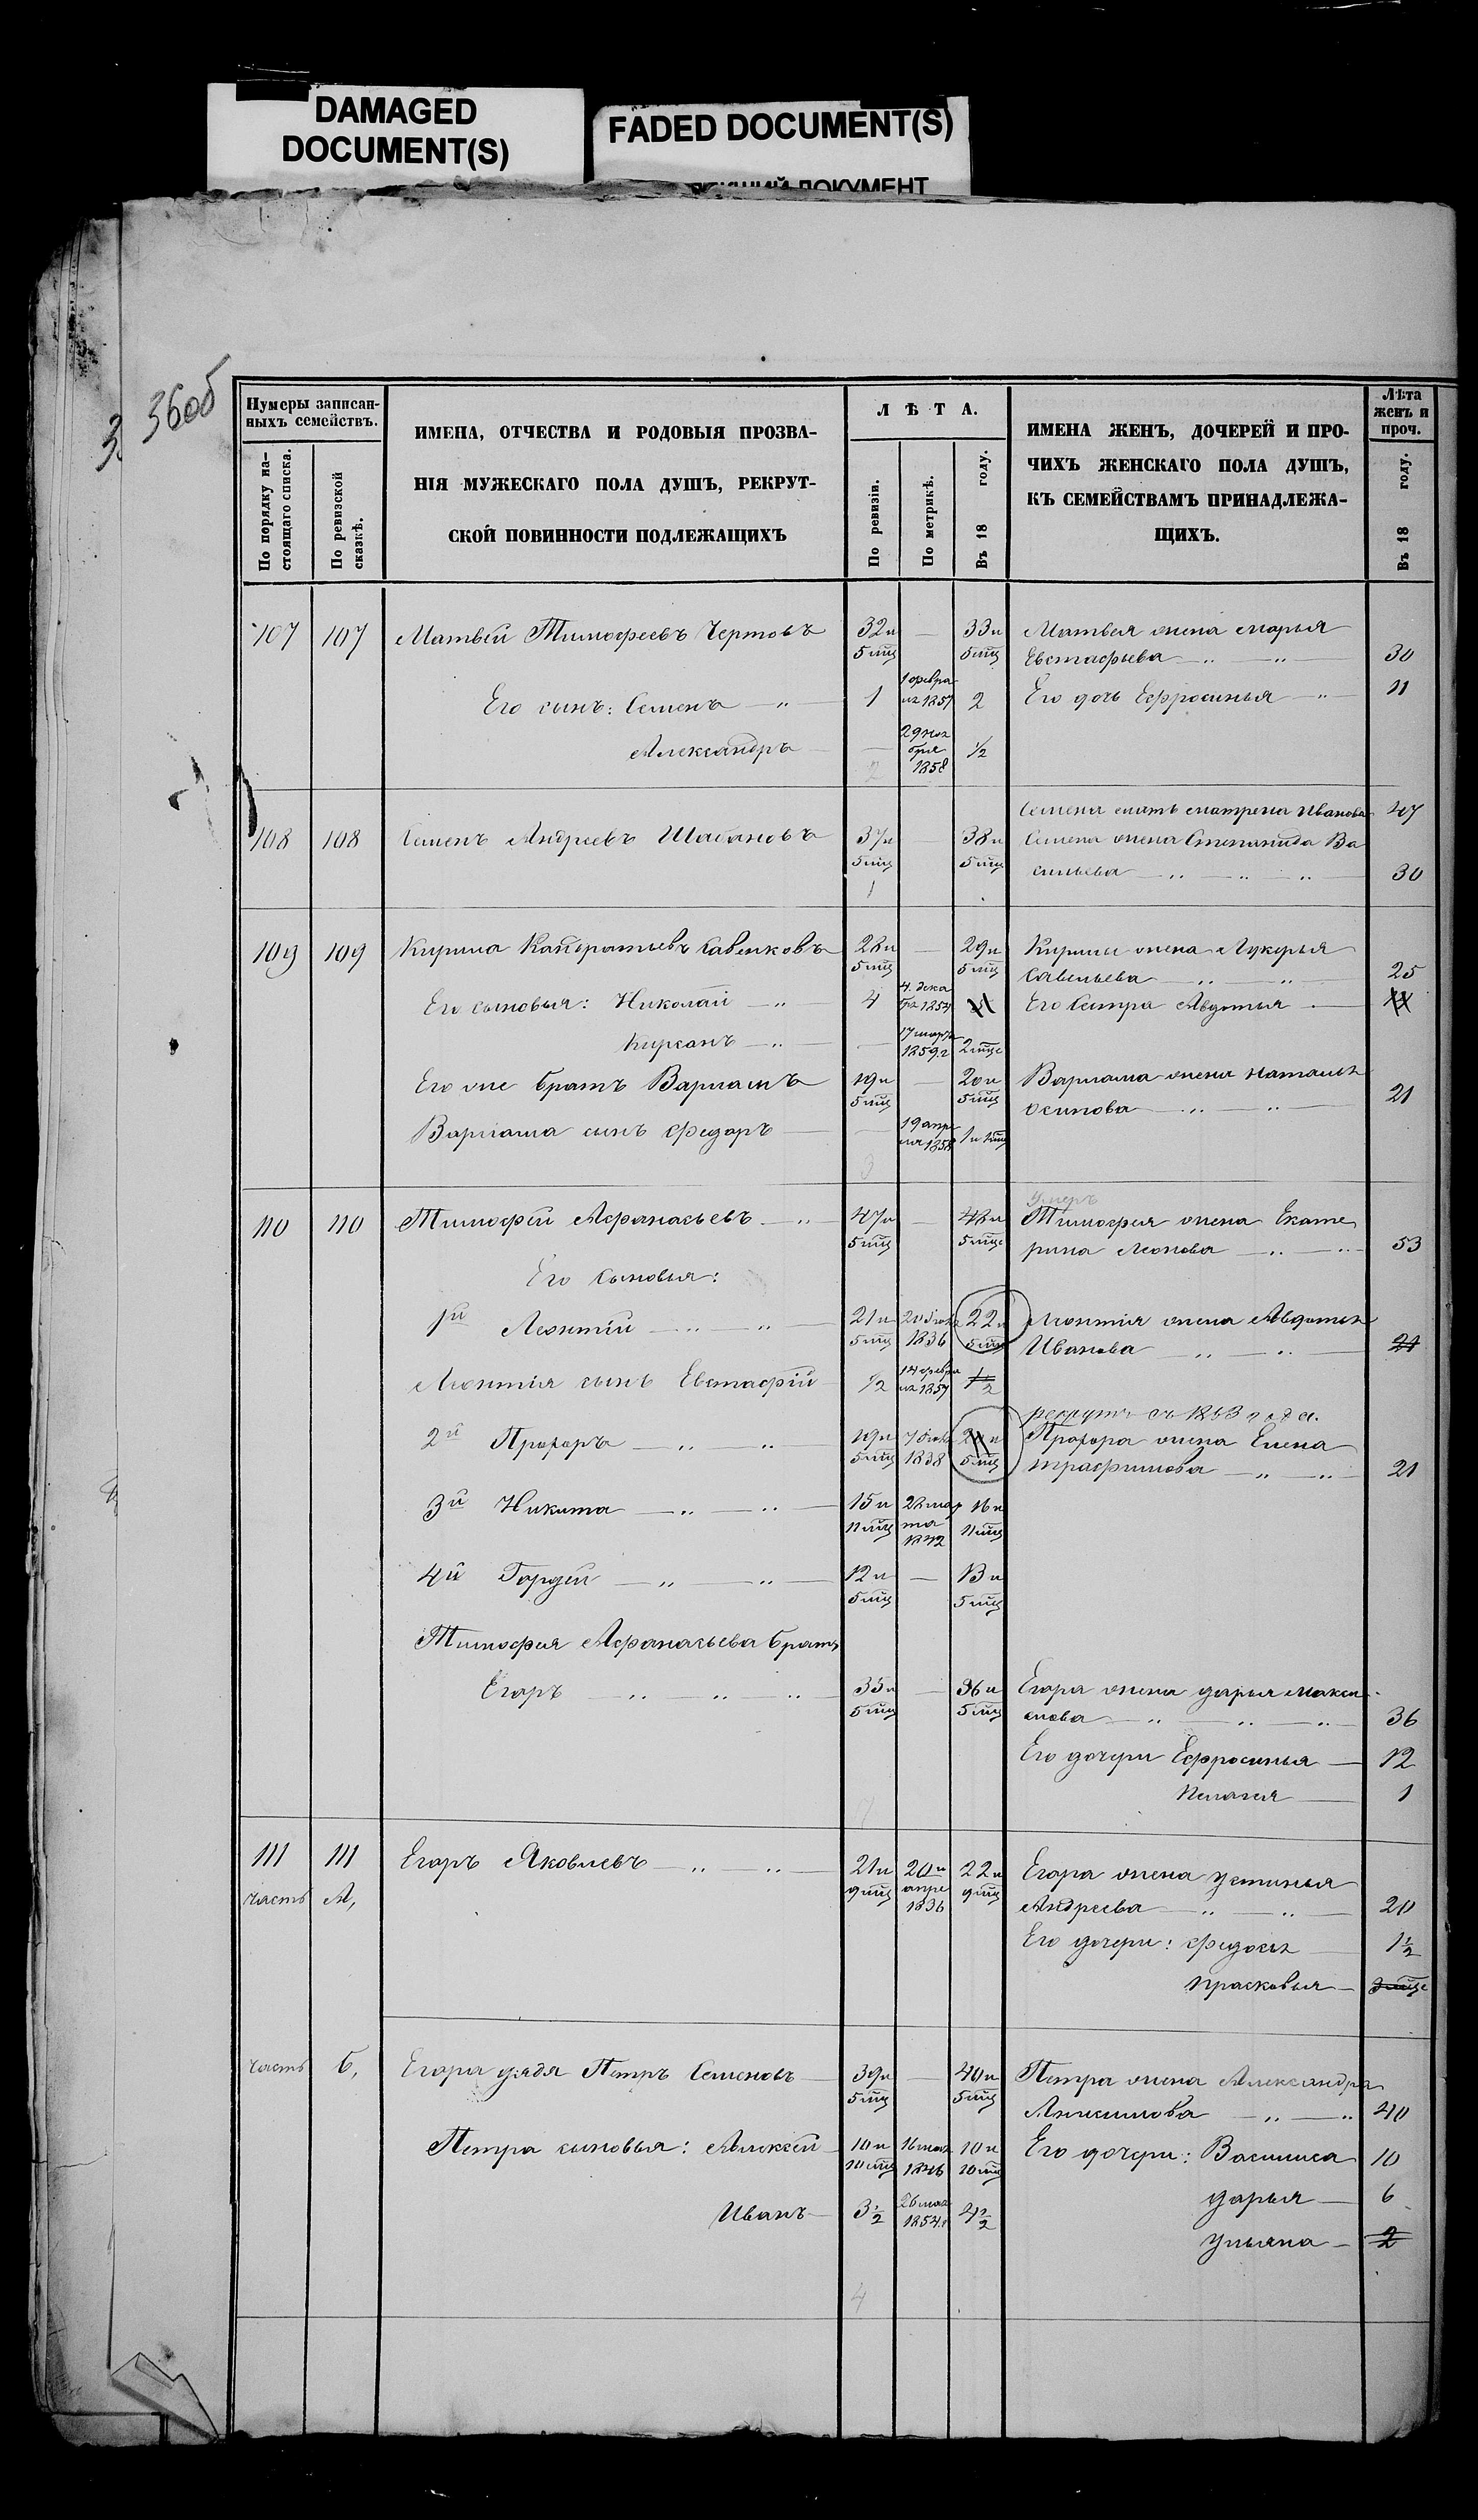 DAMAGED
DOCUMENT(S)
FADED DOCUMENT(S)
ДОКУМЕНТ
36об
Нумеры записан-
ныхъ семействъ.
По порядку на-
стоящаго списка.
По ревизской
сказкѣ.
ИМЕНА, ОТЧЕСТВА И РОДОВЫЯ ПРОЗВА-
НІЯ МУЖЕСКАГО ПОЛА ДУШЪ, РЕКРУТ-
СКОЙ ПОВИННОСТИ ПОДЛЕЖАЩИХЪ
ЛѢТА.
По ревизіи.
По метрикѣ.
Въ 18 году.
ИМЕНА ЖЕНЪ, ДОЧЕРЕЙ И ПРО-
ЧИХЪ ЖЕНСКАГО ПОЛА ДУШЪ,
КЪ СЕМЕЙСТВАМЪ ПРИНАДЛЕЖА-
ЩИХЪ.
Лѣта
женъ и
проч.
Въ 18 году.
107 107 Матвѣй Тимофеевъ Чертовъ 32 и 5 мцъ — 33 и 5 мцъ Матвея жена Марья
Евстафьева 30
Его сынъ: Семенъ 1 1 февра ля 1857 2 Его дочь Ефросинья 11
Александръ — 29 ноя бря 1858 1/2
2
Семена мать Матрена Иванова 47
108 108 Семенъ Андреевъ Шабановъ 37 и 5 мцъ — 38 и 5 мцъ Семена жена Степанида Ва
сильева 30
1
109 109 Кирила Савенковъ 28 и 5 мцъ — 29 и 5 мцъ Кирилы жена Лукерья
Савельева 25
Его сыновья: Николай 4 4 дека бря 1854 Его сестра Авдотья
Кирсанъ — 17 марта 1859 г 2 мце
Его же братъ Варламъ 19 и 5 мцъ — 20 и 5 мцъ Варлама жена Наталья
Осипова 21
Варлама сынъ Федоръ — 19 апре ля 1858 1 и 1 мцъ
3
умеръ
110 110 Тимофѣй Афанасьевъ 47 и 5 мцъ — 48 и 5 мце Тимофея жена Екате
рина Леонова 53
Его сыновья:
1й Леонтій 21 и 5 мцъ 1836 22 и 5 мцъ Леонтія жена Авдотья
Иванова 21
Леонтія сынъ Евстафій 1/2 14 февра ля 1857 1 1/2
рекрутъ съ 1863 года.
2й Прохоръ 19 и 5 мцъ 1838 5 мцъ Прохора жена Елена
Трафимова 21
3й Никита 15 и 11 мцъ 22 мар та 1842 16 и 11 мцъ
4й Гордѣй 12 и 5 мцъ — 13 и 5 мцъ
Тимофея Афанасьева братъ
Егоръ 35 и 5 мцъ — 36 и 5 мцъ Егора жена Дарья Макси
мова 36
Его дочери Ефросинья 12
Пелагея 1
7
111 111 Егоръ Яковлевъ 21 и 9 мцъ 20 и апре 1836 22 и 9 мцъ Егора жена Устинья
часть А, Андреева 20
Его дочери: Федосья 1 1/2
Прасковья 3 мце
часть Б, Егора дядя Петръ Семеновъ 39 и 5 мцъ — 40 и 5 мцъ Петра жена Александра
Анисимова 40
Петра сыновья: Алексѣй 10 и 10 мцъ 1846 10 и 10 мцъ Его дочери: Василиса 10
Дарья 6
Иванъ 3 1/2 26 мая 1854 г 4 1/2
Ульяна 2
4